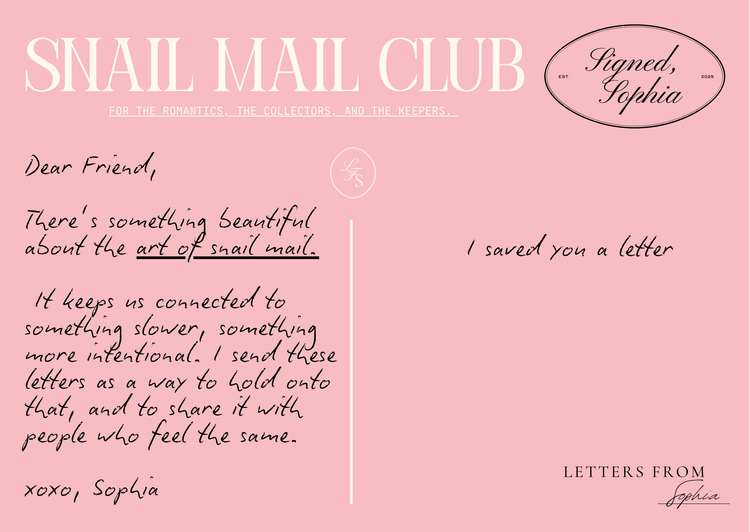 SNAIL MAIL CLUB
FOR THE ROMANTICS, THE COLLECTORS, AND THE KEEPERS.
EST.
Signed,
Sophia
2025
LFS
Dear Friend,
There's something beautiful
about the art of snail mail.
It keeps us connected to
something slower, something
more intentional. I send these
letters as a way to hold onto
that, and to share it with
people who feel the same.
xoxo, Sophia
I saved you a letter
LETTERS FROM
Sophia